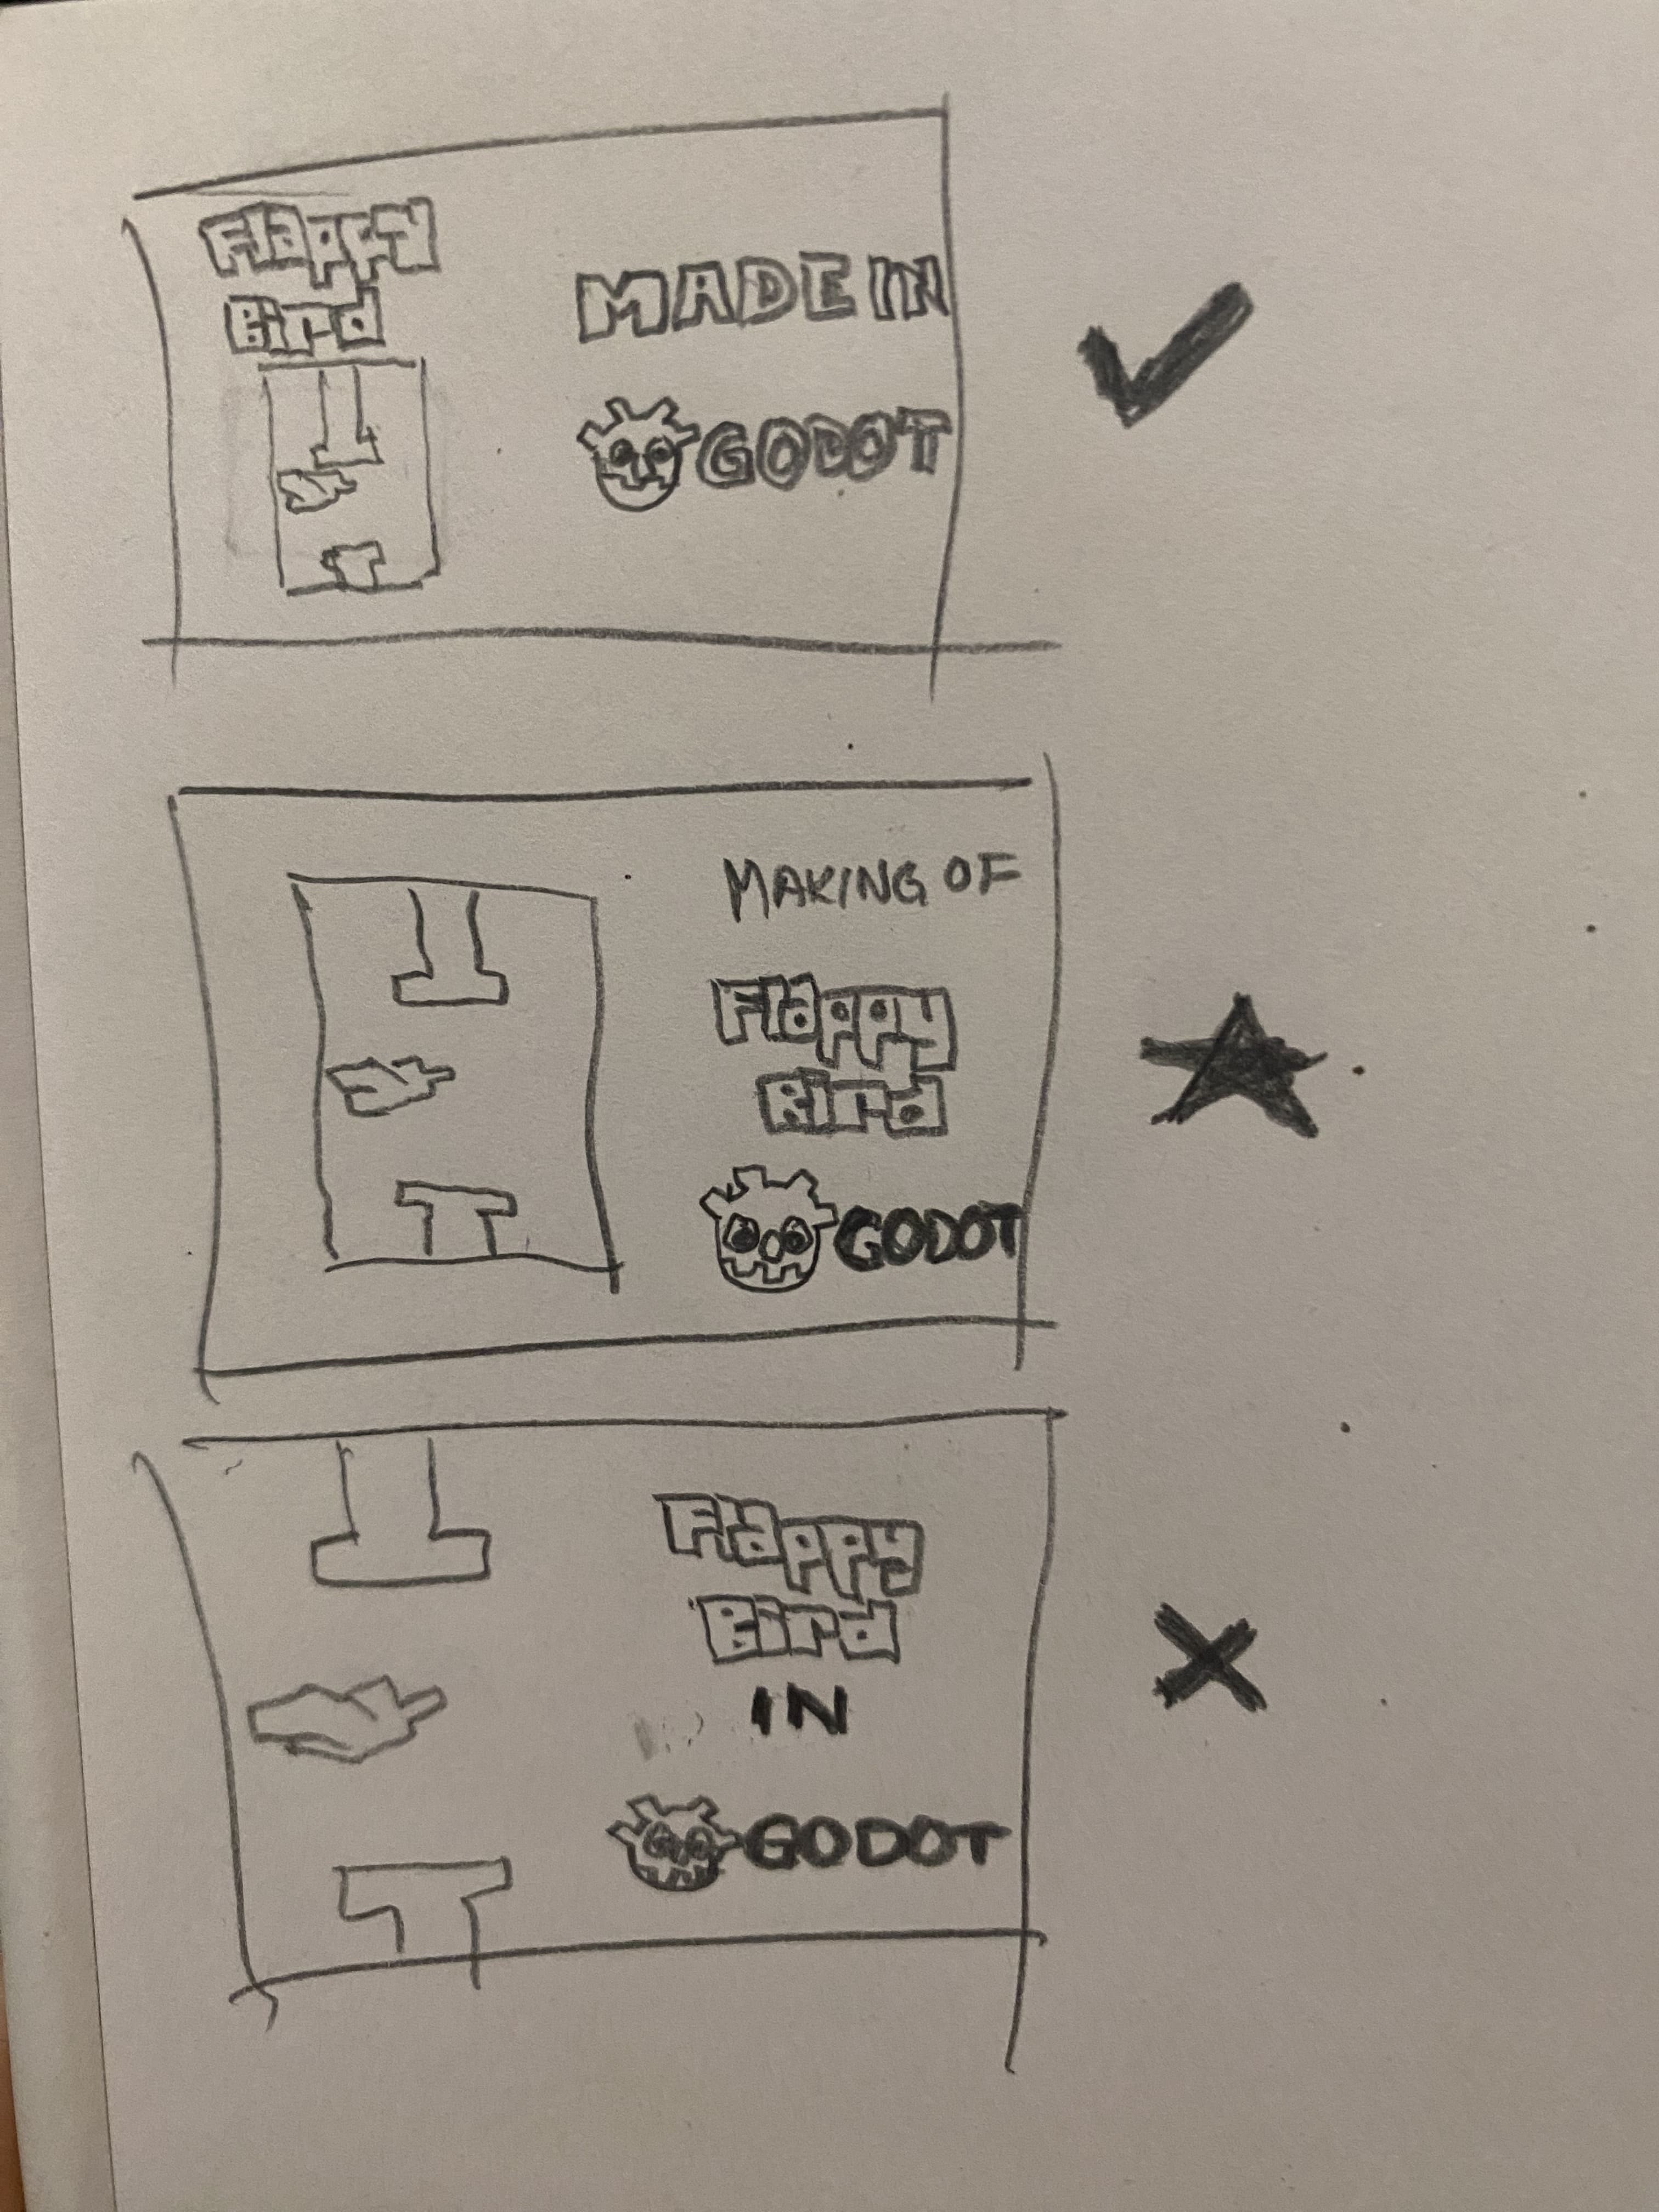 Flappy
Bird
MADE IN
GODOT
MAKING OF
Flappy
Bird
GODOT
Flappy
Bird
IN
GODOT